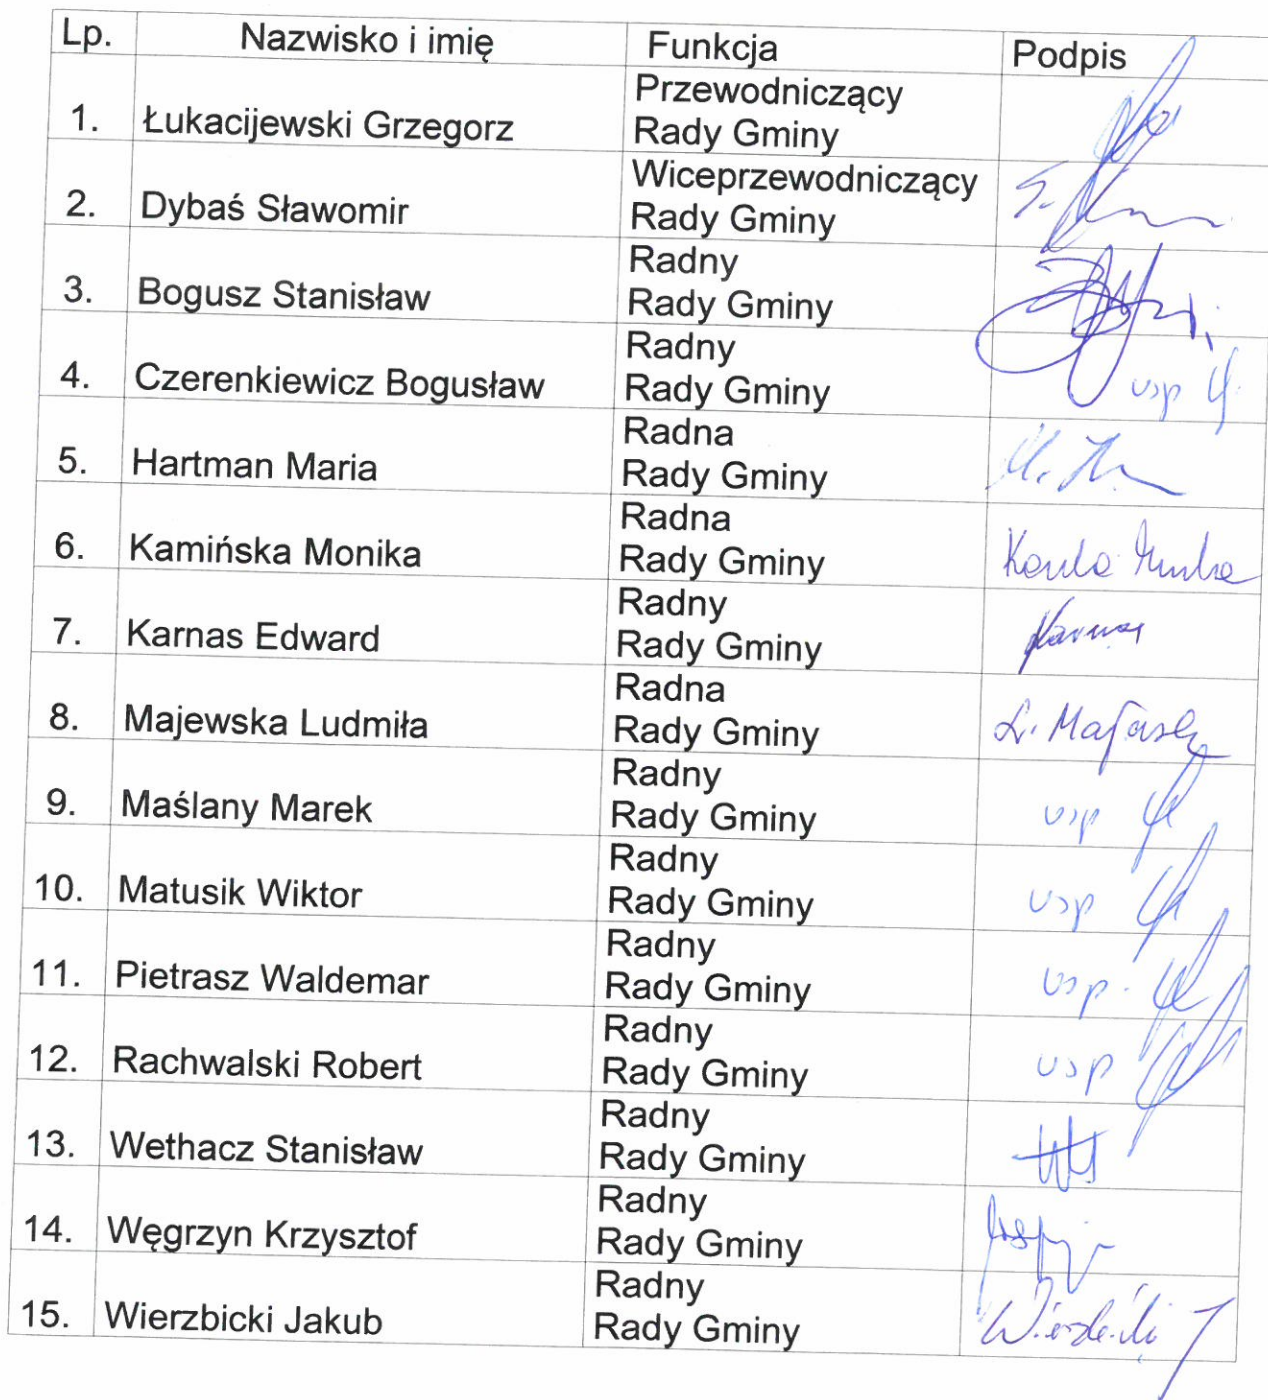 Lp. Nazwisko i imię Funkcja Podpis
1. Łukacijewski Grzegorz Przewodniczący
Rady Gminy
2. Dybaś Sławomir Wiceprzewodniczący
Rady Gminy
3. Bogusz Stanisław Radny
Rady Gminy
4. Czerenkiewicz Bogusław Radny
Rady Gminy usp
5. Hartman Maria Radna
Rady Gminy
6. Kamińska Monika Radna
Rady Gminy
7. Karnas Edward Radny
Rady Gminy
8. Majewska Ludmiła Radna
Rady Gminy
9. Maślany Marek Radny
Rady Gminy usp
10. Matusik Wiktor Radny
Rady Gminy usp
11. Pietrasz Waldemar Radny
Rady Gminy usp.
12. Rachwalski Robert Radny
Rady Gminy usp
13. Wethacz Stanisław Radny
Rady Gminy
14. Węgrzyn Krzysztof Radny
Rady Gminy
15. Wierzbicki Jakub Radny
Rady Gminy